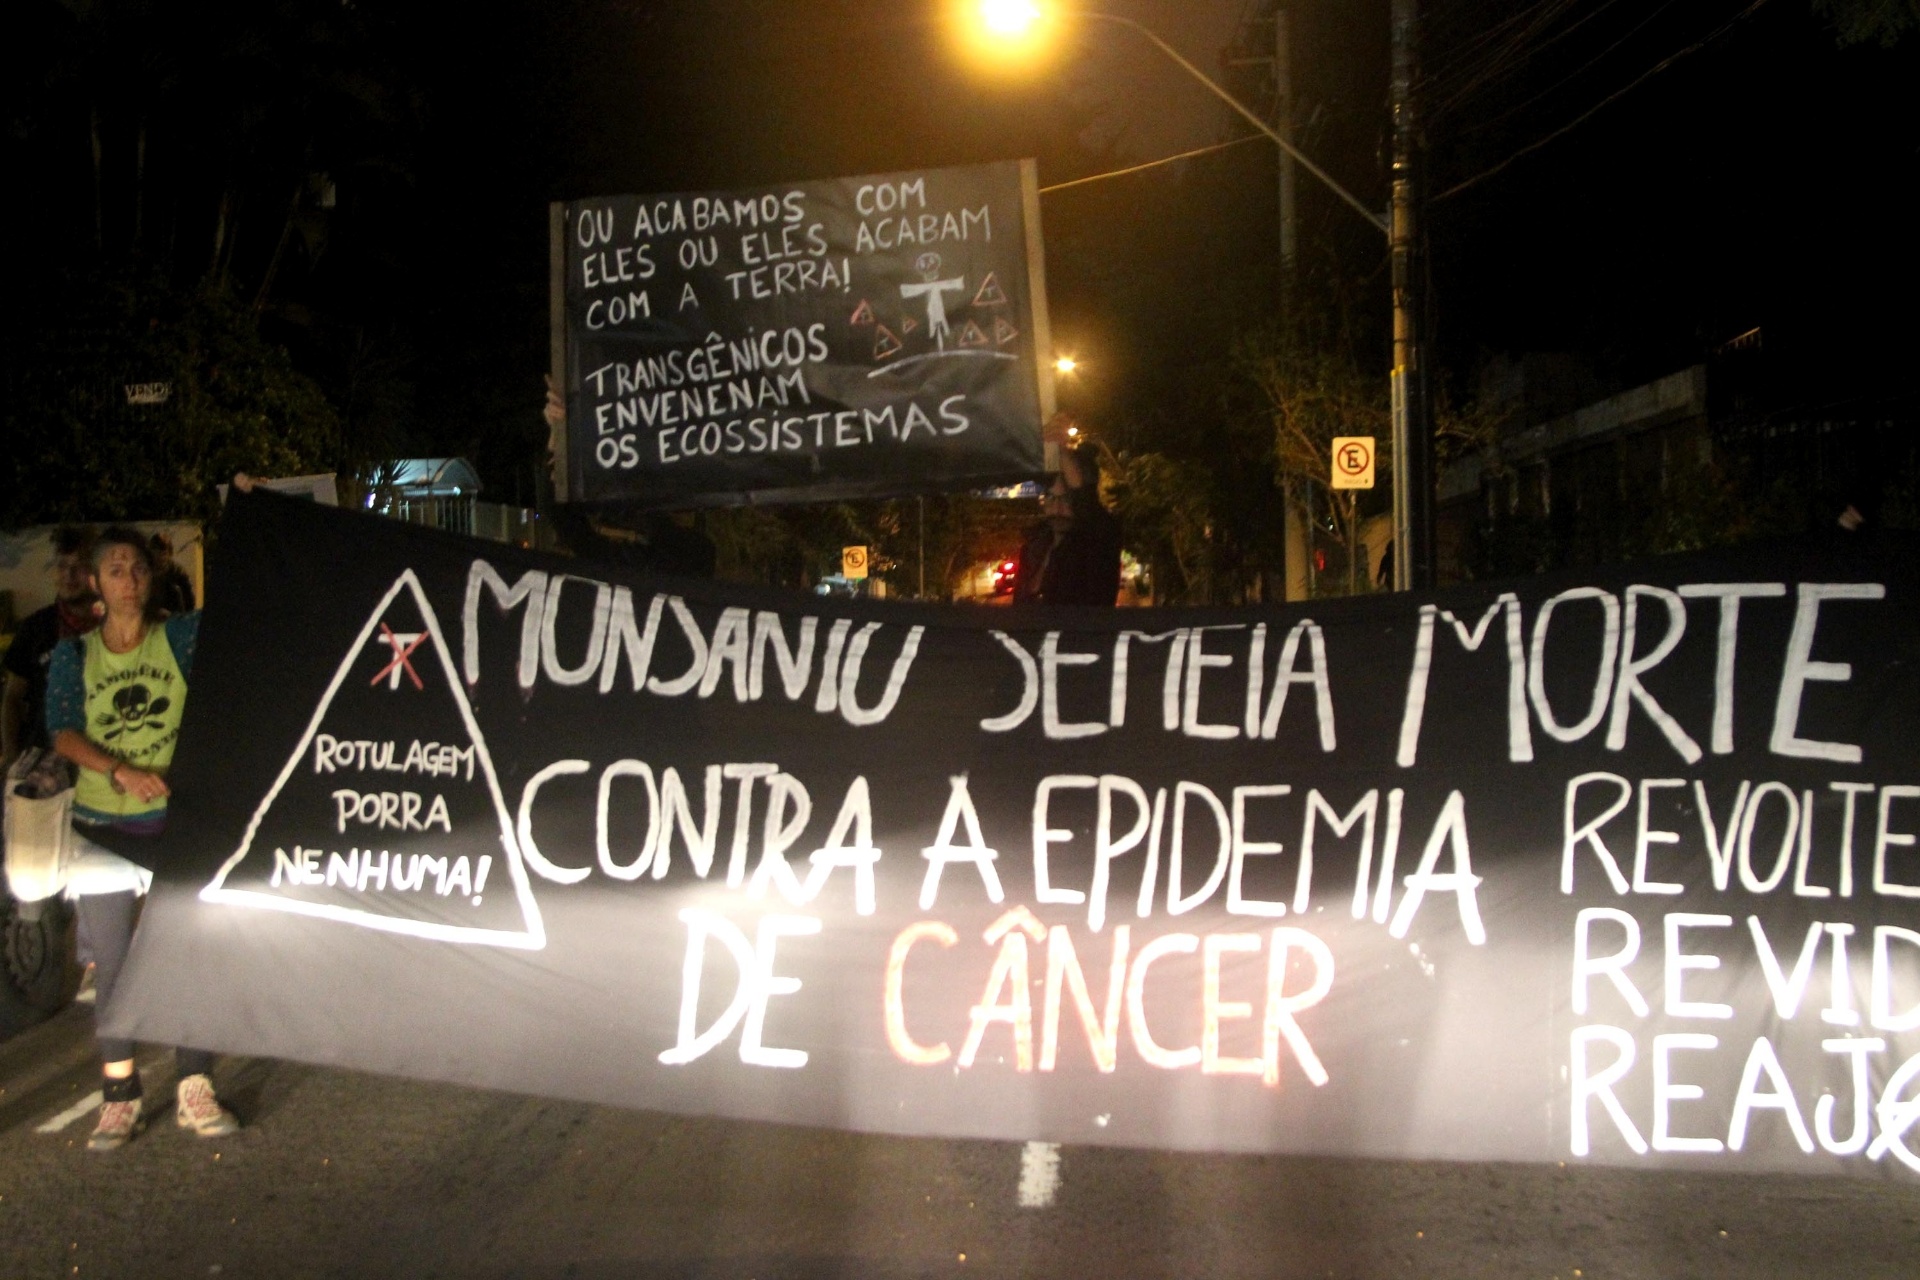 OU ACABAMOS COM
ELES OU ELES ACABAM
COM A TERRA!
TRANSGÊNICOS
ENVENENAM
OS ECOSSISTEMAS
VENDE
E
E
T
ROTULAGEM
PORRA
NENHUMA!
MONSANTO SEMEIA MORTE
CONTRA A EPIDEMIA
DE CÂNCER
REVOLTE
REVID
REAJ
MONSANTO